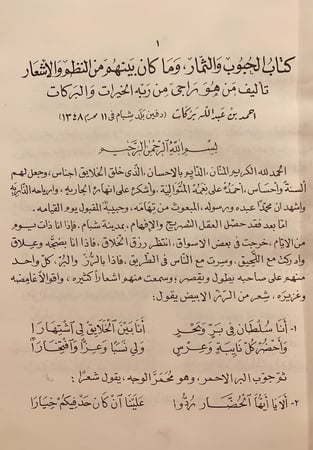 ١
كتاب الحبوب والثمار، وما كان بينهم من النظم والأشعار
تأليف من هو راجي من ربه الخيرات والبركات
احمد بن عبد الله بركات (دفين بلد شبام في ١١ محرم ١٣٤٨)
بسم الله الرحمن الرحيم
الحمد لله الكريم المنان، القايم بالاحسان، الذي خلق الخلايق اجناس، وجعل لهم
ألسنة وأحساس، أحمده على نعمه المتوالية، وأشكره على انهاره الجاريه، وارياحه الذاريه
واشهد ان محمدًا عبده ورسوله، المبعوث من تهامه، وحبيبة القبول يوم القيامه.
امّا بعد فقد حصل العقل الشريح والإفهام، بمدينة شبام، فإذا انا ذات يوم
من الأيام، خرجت في بعض الاسواق، انتظر رزق الخلاق، فاذا انا بضجّه وعلاق
وادركت مع التحقيق، وسرت مع الناس في الطريق، فاذا بالرُّز والبُرّ، كلٌّ واحد
منهم على صاحبه يطول ويقصر، وسمعت منهم اشعارًا كثيره، واقوالًا غامضه
وغزيره، شعر من الرز الابيض يقول:
١- أنا سُلطان في بَرٍّ وبَحْرٍ أنا بين الخلايق لي اشتهارا
وأحضر كلّ نايبة وعرس ولي نسبًا وعزًا وافتخارا
ثم جوب البر الاحمر، وهو محمر الوجه، يقول شعرًا:
٢- ألا يا أيها الحضّار ردّوا علينا ان كان حد فيكم خيارا